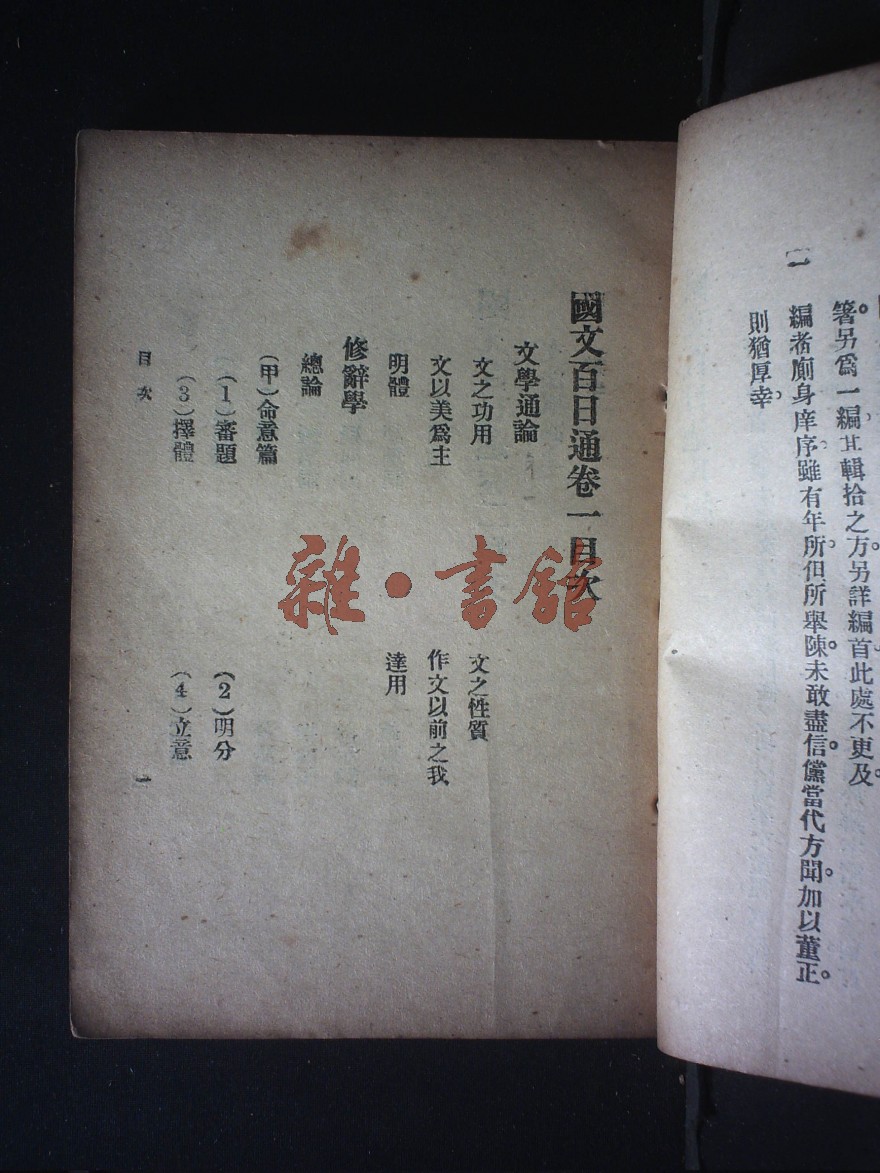 箸另爲一編其輯拾之方另詳編首此處不更及。
編者廁身庠序雖有年所但所舉陳未敢盡信儻當代方聞加以董正。
則猶厚幸。
一
國文百日通卷一目次
文學通論
文之功用 文之性質
文以美爲主 作文以前之我
明體 達用
修辭學
總論
(甲)命意篇
(1)審題 (2)明分
(3)擇體 (4)立意
目次 一
雜·書館